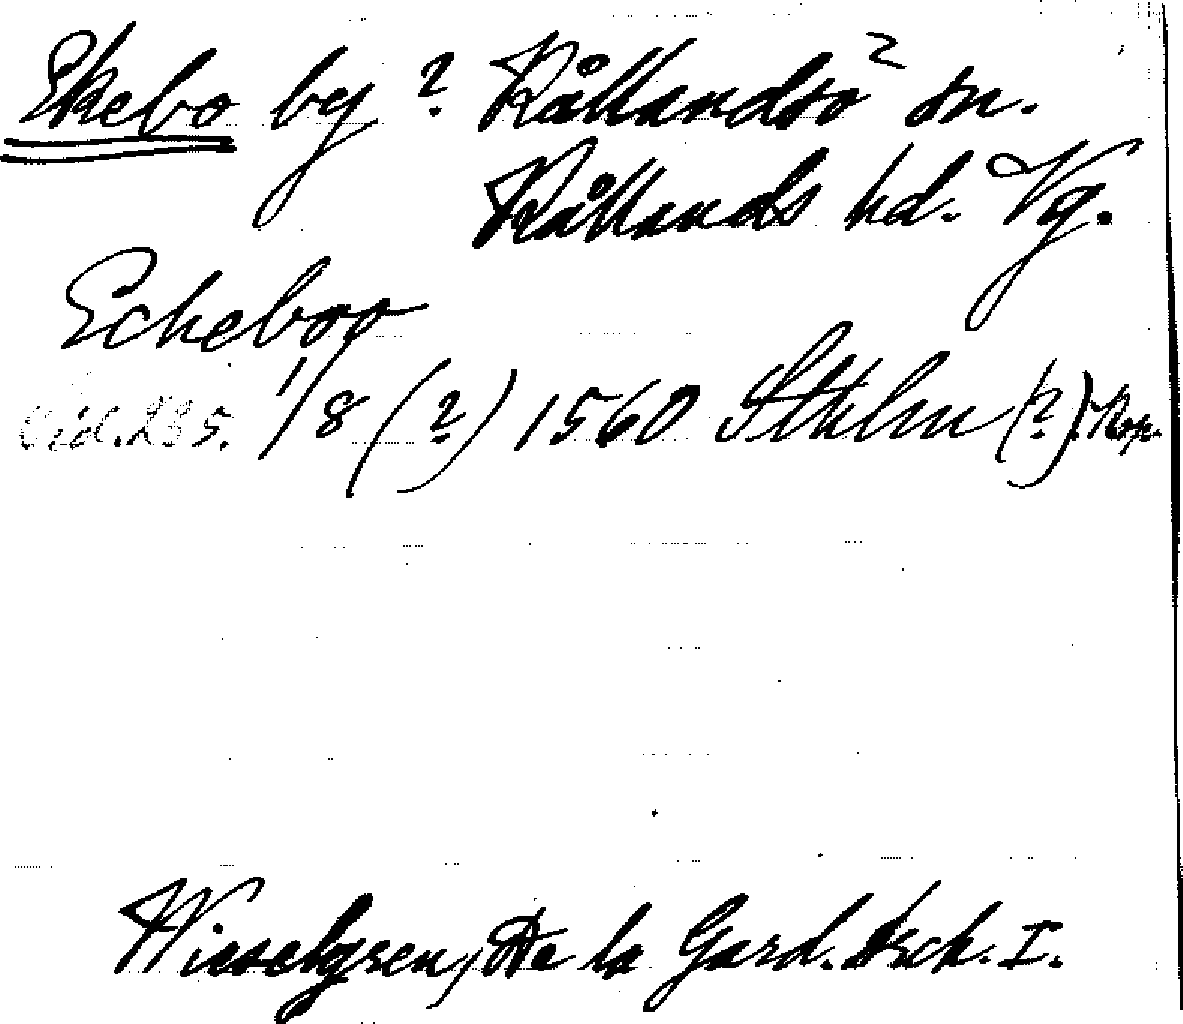 Ekebo by ? Kållandsö sn.
Kållands hd. Vg.
Echeboo
sid. 235. 1/8 (?) 1560 Sthlm (?). Kop.
Wieselgren, De la Gard. Arch. I.